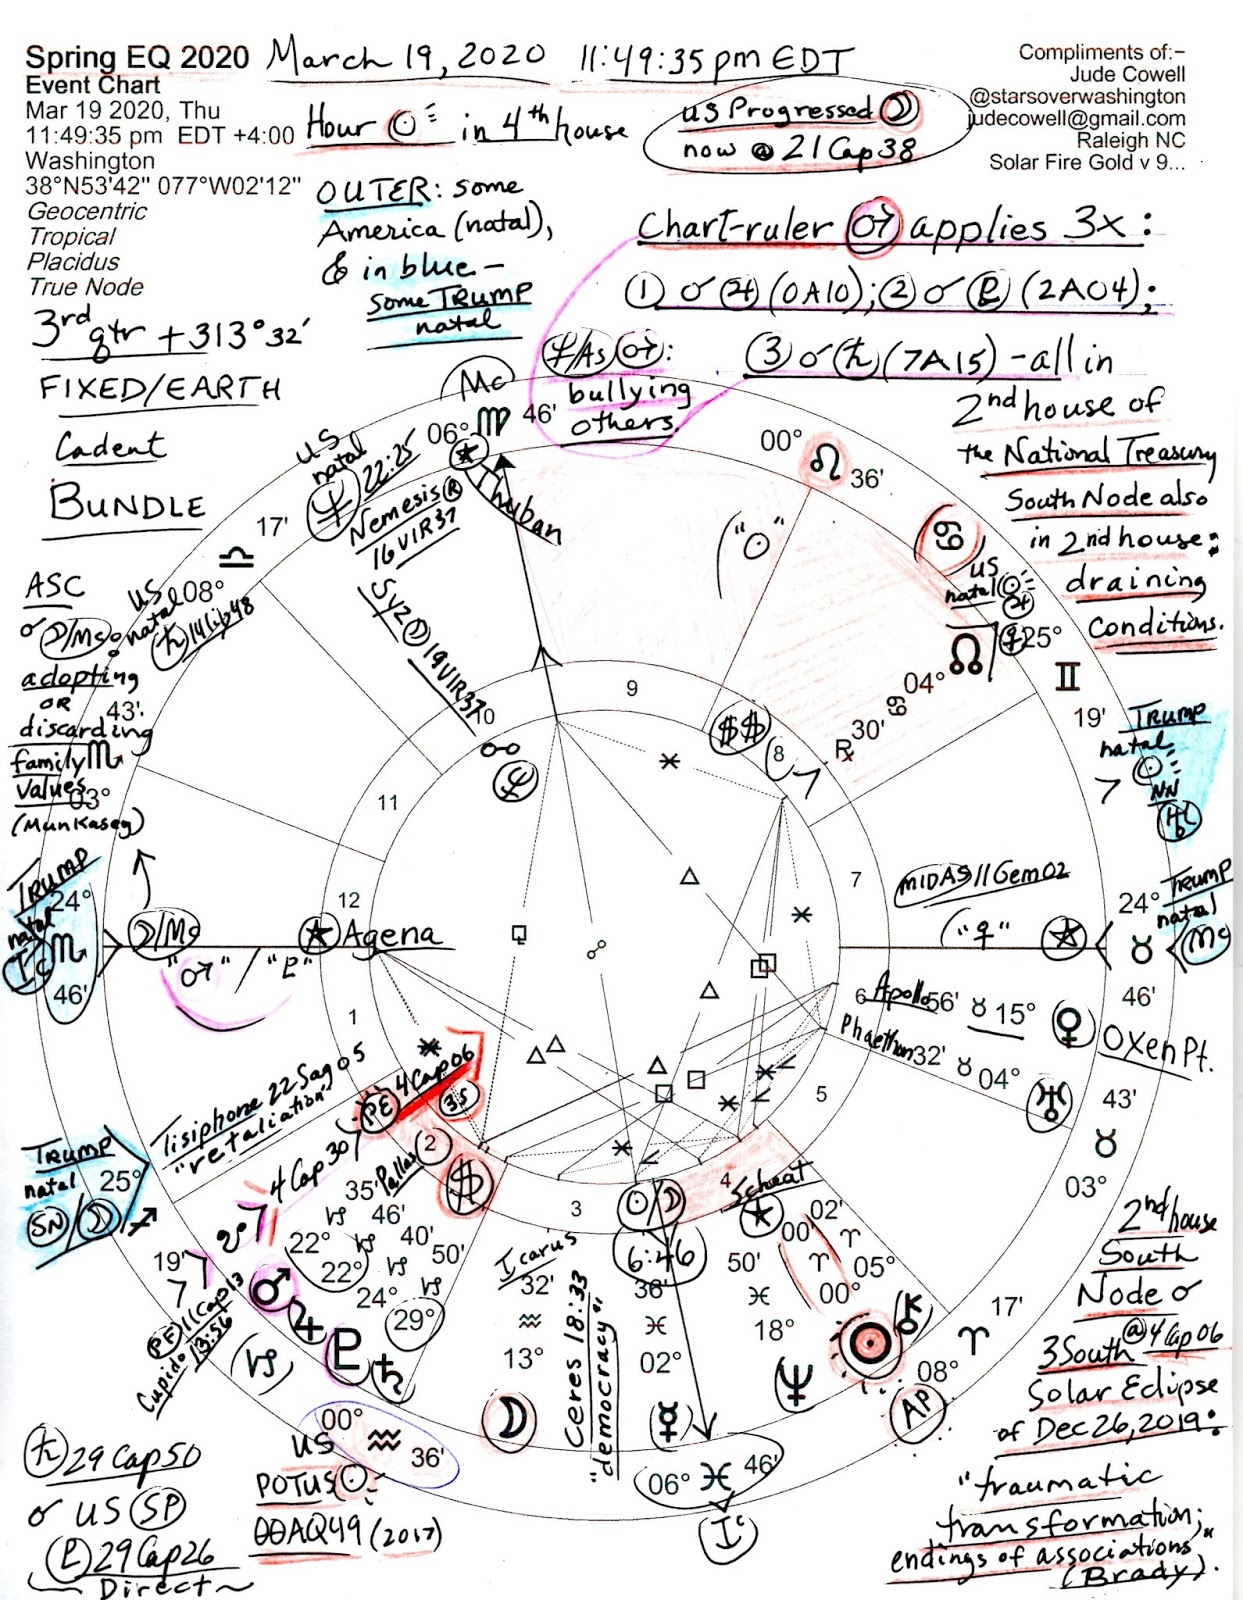 Spring EQ 2020 March 19, 2020 11:49:35 pm EDT
Event Chart
Mar 19 2020, Thu
11:49:35 pm EDT +4:00
Washington
38°N53'42" 077°W02'12"
Geocentric
Tropical
Placidus
True Node
3rd qtr + 313°32'
FIXED/EARTH
Cadent
BUNDLE
Hour ☉ in 4th house
US Progressed ☽
now @ 21 Cap 38
Compliments of:-
Jude Cowell
@starsoverwashington
judecowell@gmail.com
Raleigh NC
Solar Fire Gold v 9...
OUTER: some
America (natal),
& in blue –
some TRUMP
natal
Chart-ruler ♂ applies 3x:
① ☌ ♃ (0A10); ② ☌ ♇ (2A04);
③ ☌ ♄ (7A15) - all in
2nd house of
the National Treasury
South Node also
in 2nd house:
draining
conditions.
♆/As ♂:
bullying
others.
Mc
06° ♍ 46'
Thuban
US
natal
♆ 22:25
Nemesis ℞
16 VIR 37
Syz ☽ 19 VIR 37
17'
♎
08°
US
natal
♄ 14 Lib 48
ASC
☌ ☽/Mc:
adopting
OR
discarding
family
values
(Munkasey)
43'
♏
03°
TRUMP
natal
Ic
24°
♏
46'
☽/Mc
"♂" / "♇"
Agena
00°
♌
36'
"☉"
♋
US
natal ☉
♃
♀
25°
♊
19'
☊
04°
♋
30'
℞
$$
TRUMP
natal
☉
NN
♅
MIDAS 11 Gem 02
("♀")
24°
♉
46'
TRUMP
natal
Mc
Apollo 56' ♉ 15° ♀ OXEN Pt.
Phaethon 32' ♉ 04° ♅
43'
♉
03°
1
2
3
4
5
6
7
8
9
10
11
12
Tisiphone 22 Sag 05
"retaliation"
PE 4 Cap 06
3S
TRUMP
natal
SN/☽
25°
♐
19'
☋ 4 Cap 30
Pallas
35' ♑ 22° ♂
46' ♑ 22° ♃
40' ♑ 24° ♇
50' ♑ 29° ♄
$
PF 11 Cap 13
Cupido 13:56
♑
Icarus
32'
♒
13°
☽
Ceres 18:33
"democracy"
☉/☽
6:46
36'
♓
02°
☿
Scheat
50'
♓
18°
♆
00' ♈ 00° ☉
02' ♈ 05° ⚷
17'
♈
08°
AP
06° ♓ 46'
Ic
00° ♒ 36'
US
POTUS ☉
00AQ49 (2017)
♄ 29 Cap 50
☌ US SP
♇ 29 Cap 26
~ Direct ~
2nd house
South
Node ☌
3 South @ 4 Cap 06
Solar Eclipse
of Dec 26, 2019:
"traumatic
transformation;
endings of associations"
(Brady).